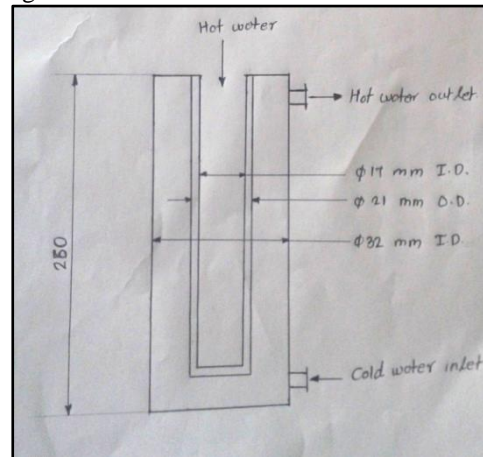 Hot water
Hot water outlet
ϕ17 mm I.D.
ϕ21 mm O.D.
ϕ32 mm I.D.
250
Cold water inlet